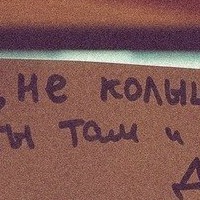 , не колы
ты там и